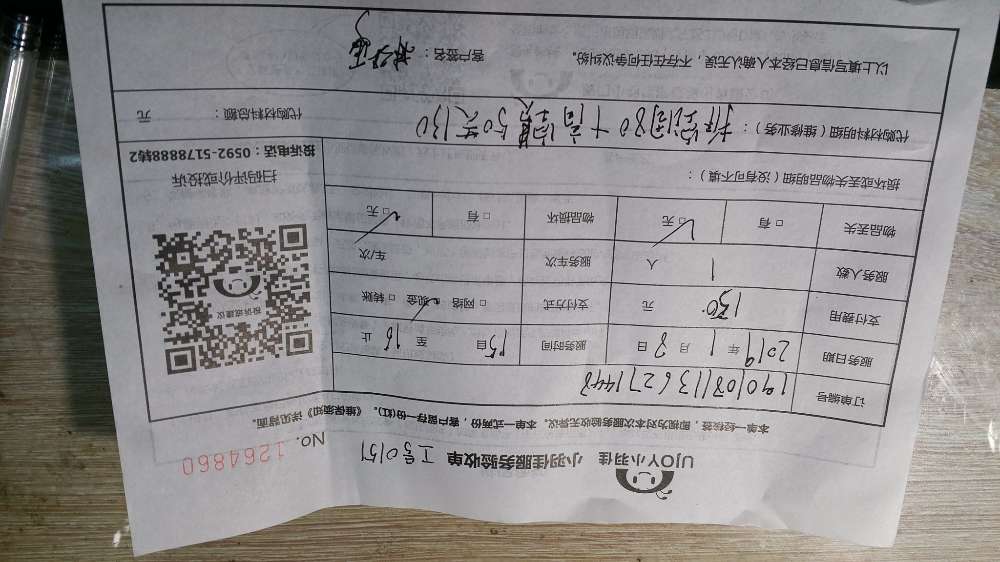 UJOY小羽佳 小羽佳服务验收单 工号0151
No. 1264860
本单一经核签，即视为对本次服务验收无异议。本单一式两份，客户留存一份(红)。《维保须知》详见背面。
订单编号 1901081136271448
服务日期 2019 年 1 月 8 日 服务时间 15 自 至 16 止
支付费用 130 元 支付方式 □ 网络 □ 现金 □ 转账
服务人数 1 人 服务车次 车/次
物品丢失 □ 有 □ 无 物品损坏 □ 有 □ 无
损坏或丢失物品明细（没有可不填）：
投诉或建议
扫码评价或投诉
投诉电话：0592-5178888转2
代购材料明细（维修业务）： 80 + 高 50 130
代购材料总额： 元
以上填写信息已经本人确认无误，不存在任何争议纠纷。 客户签名：